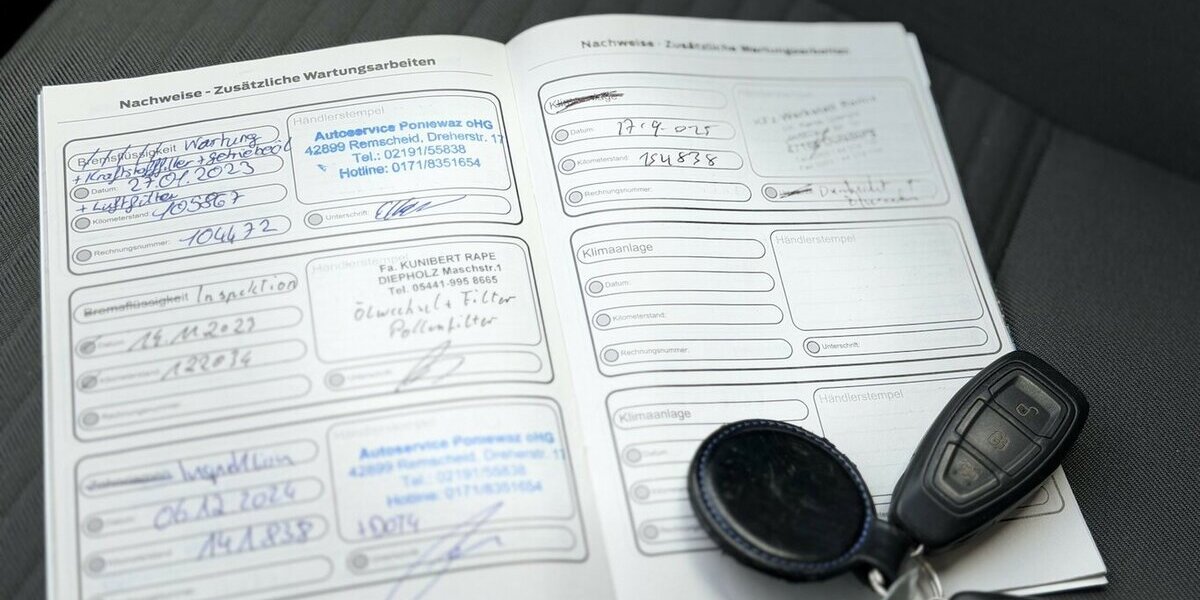 Nachweise - Zusätzliche Wartungsarbeiten
Bremsflüssigkeit Wartung
+ Kraftstofffilter + Getriebeöl
Datum: 27.01.2023
+ Luftfilter
Kilometerstand: 105867
Rechnungsnummer: 104472
Händlerstempel
Autoservice Poniewaz oHG
42899 Remscheid, Dreherstr. 17
Tel.: 02191/55838
Hotline: 0171/8351654
Unterschrift:
Bremsflüssigkeit Inspektion
Datum 14.11.2023
122034
Händlerstempel
Fa. KUNIBERT RAPE
DIEPHOLZ Maschstr.1
Tel. 05441-995 8665
Ölwechsel + Filter
Pollenfilter
Inspektion
06.12.2024
141.838
Autoservice Poniewaz oHG
42899 Remscheid, Dreherstr. 17
Tel.: 02191/55838
Hotline: 0171/8351654
+DOT4
Nachweise - Zusätzliche Wartungsarbeiten
Klimaanlage
Datum: 17.9.025
Kilometerstand: 154838
Rechnungsnummer:
Klimaanlage
Datum:
Kilometerstand:
Rechnungsnummer:
Händlerstempel
Unterschrift:
Klimaanlage
Datum:
Händlerstempel